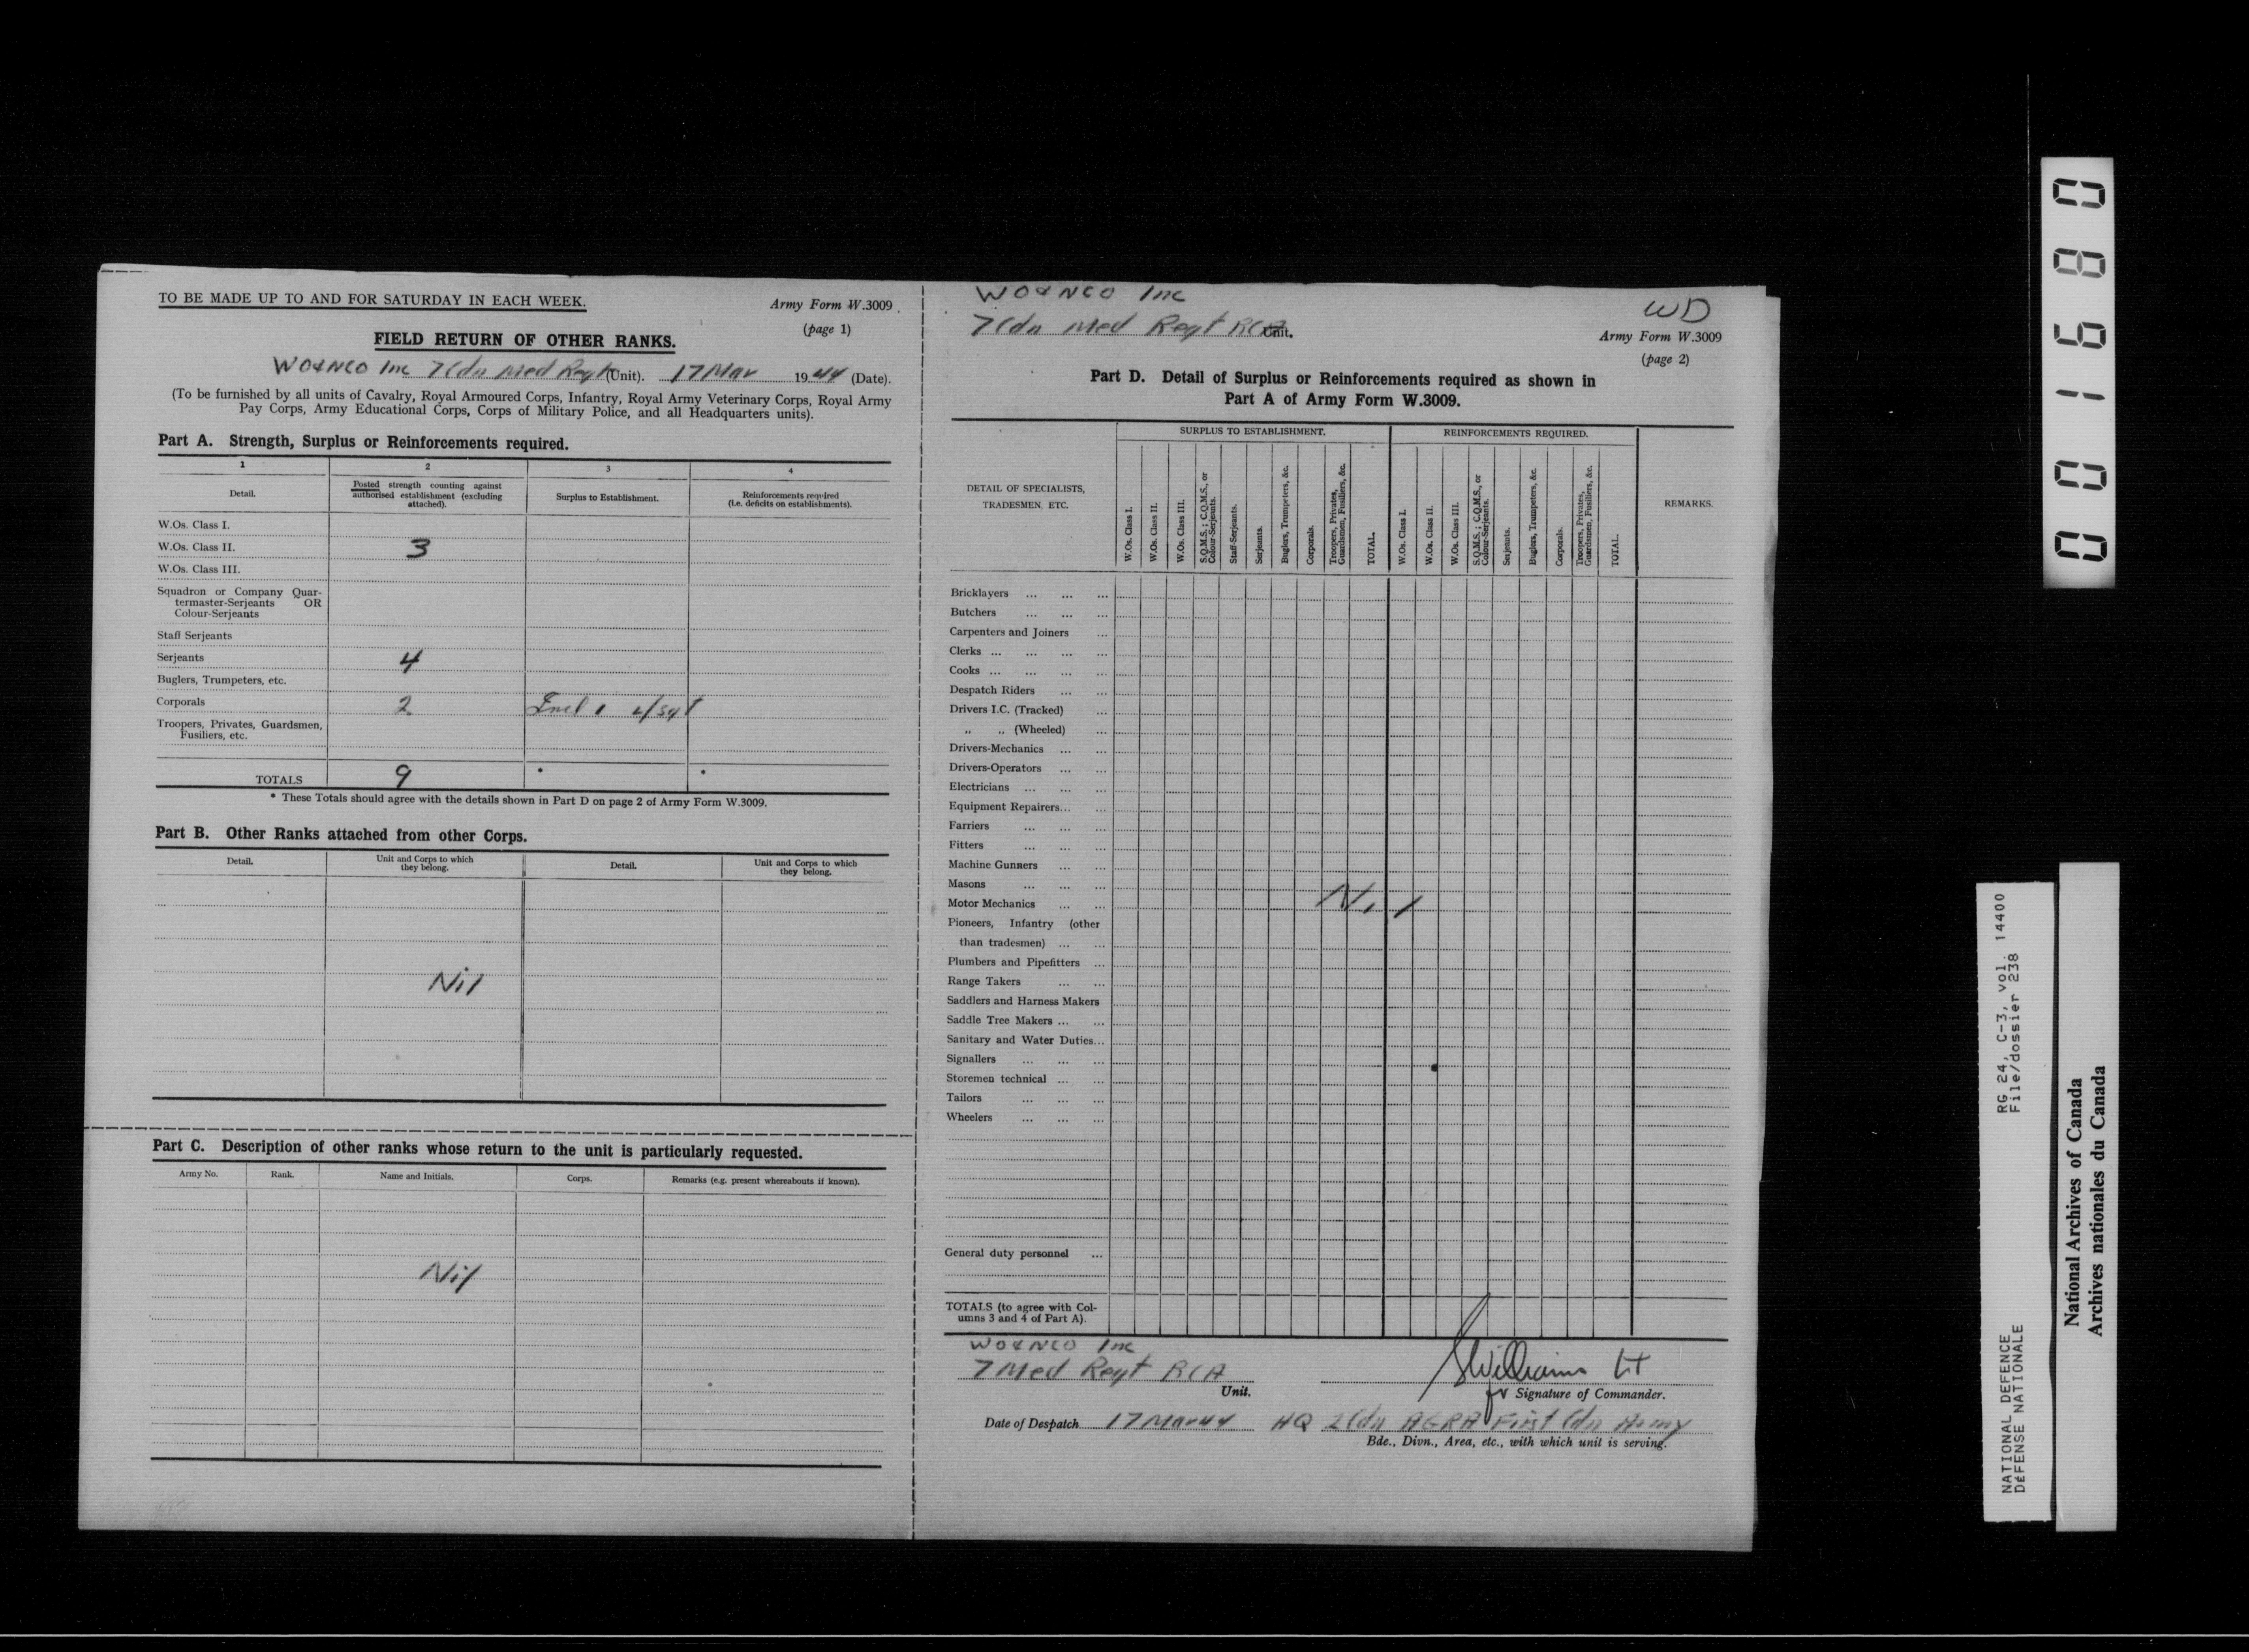 TO BE MADE UP TO AND FOR SATURDAY IN EACH WEEK.
Army Form W.3009
(page 1)
FIELD RETURN OF OTHER RANKS.
WO & NCO Inc 7 Cdn Med Regt (Unit). 17 Mar 1944 (Date).
(To be furnished by all units of Cavalry, Royal Armoured Corps, Infantry, Royal Army Veterinary Corps, Royal Army
Pay Corps, Army Educational Corps, Corps of Military Police, and all Headquarters units).
Part A. Strength, Surplus or Reinforcements required.
1 2 3 4
Detail.
Posted strength counting against
authorised establishment (excluding
attached).
Surplus to Establishment.
Reinforcements required
(i.e. deficits on establishments).
W.Os. Class I.
W.Os. Class II. 3
W.Os. Class III.
Squadron or Company Quar-
termaster-Serjeants OR
Colour-Serjeants
Staff Serjeants
Serjeants 4
Buglers, Trumpeters, etc.
Corporals 2 Incl 1 L/Sgt
Troopers, Privates, Guardsmen,
Fusiliers, etc.
TOTALS 9 * *
* These Totals should agree with the details shown in Part D on page 2 of Army Form W.3009.
Part B. Other Ranks attached from other Corps.
Detail.
Unit and Corps to which
they belong.
Detail.
Unit and Corps to which
they belong.
Nil
Part C. Description of other ranks whose return to the unit is particularly requested.
Army No. Rank. Name and Initials. Corps. Remarks (e.g. present whereabouts if known).
Nil
WO & NCO Inc
7 Cdn Med Regt RCA Unit.
WD
Army Form W.3009
(page 2)
Part D. Detail of Surplus or Reinforcements required as shown in
Part A of Army Form W.3009.
DETAIL OF SPECIALISTS,
TRADESMEN, ETC.
SURPLUS TO ESTABLISHMENT.
W.Os. Class I.
W.Os. Class II.
W.Os. Class III.
S.Q.M.S.; C.Q.M.S., or
Colour-Serjeants.
Staff-Serjeants.
Serjeants.
Buglers, Trumpeters, &c.
Corporals.
Troopers, Privates,
Guardsmen, Fusiliers, &c.
TOTAL.
REINFORCEMENTS REQUIRED.
W.Os. Class I.
W.Os. Class II.
W.Os. Class III.
S.Q.M.S.; C.Q.M.S., or
Colour-Serjeants.
Serjeants.
Buglers, Trumpeters, &c.
Corporals.
Troopers, Privates,
Guardsmen, Fusiliers, &c.
TOTAL.
REMARKS.
Bricklayers ... ... ...
Butchers ... ... ...
Carpenters and Joiners ...
Clerks ... ... ... ...
Cooks ... ... ... ...
Despatch Riders ... ...
Drivers I.C. (Tracked) ...
„ „ (Wheeled) ...
Drivers-Mechanics ... ...
Drivers-Operators ... ...
Electricians ... ... ...
Equipment Repairers... ...
Farriers ... ... ...
Fitters ... ... ...
Machine Gunners ... ...
Masons ... ... ...
Motor Mechanics ... ...
Nil
Pioneers, Infantry (other
than tradesmen) ... ...
Plumbers and Pipefitters ...
Range Takers ... ...
Saddlers and Harness Makers
Saddle Tree Makers ... ...
Sanitary and Water Duties...
Signallers ... ... ...
Storemen technical ... ...
Tailors ... ... ...
Wheelers ... ... ...
General duty personnel ...
TOTALS (to agree with Col-
umns 3 and 4 of Part A).
WO & NCO Inc
7 Med Regt RCA
Unit.
Williams Lt
for Signature of Commander.
Date of Despatch 17 Mar 44 HQ 2 Cdn AGRA First Cdn Army
Bde., Divn., Area, etc., with which unit is serving.
001680
NATIONAL DEFENCE RG 24, C-3, vol. 14400
DÉFENSE NATIONALE File/dossier 238
National Archives of Canada
Archives nationales du Canada